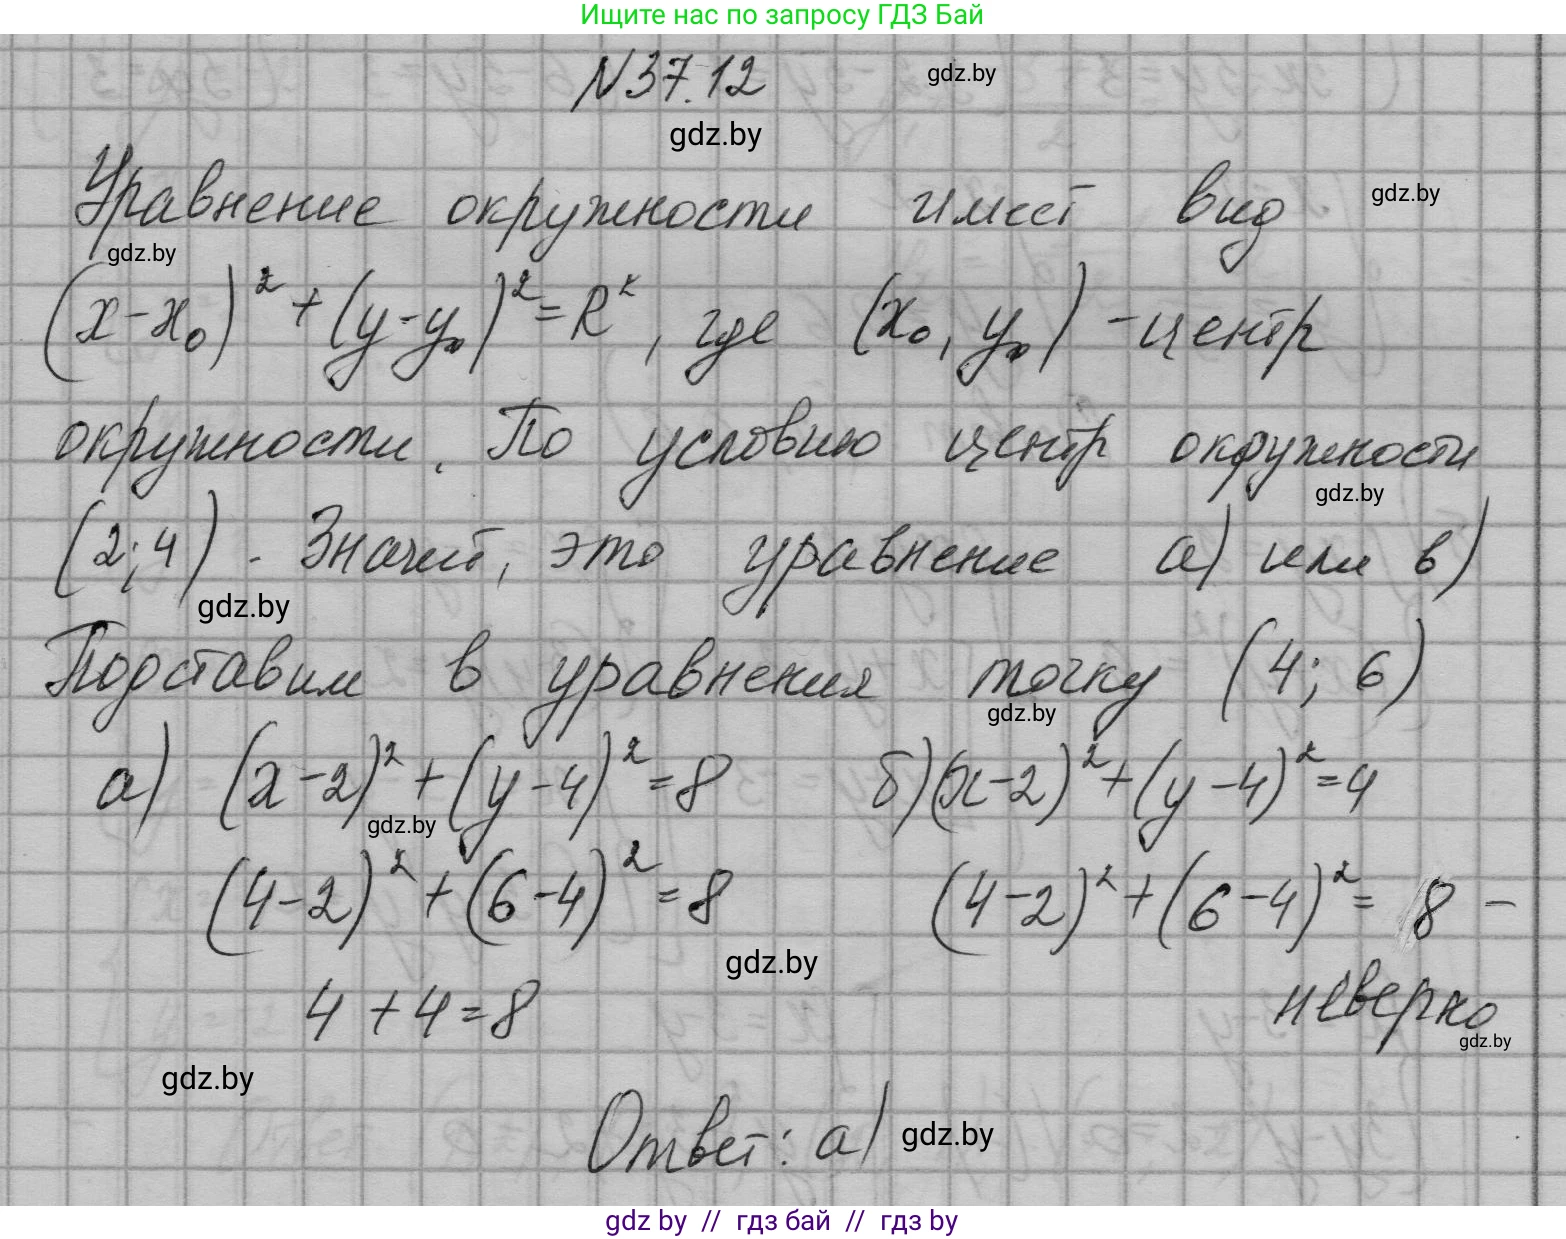 Ищите нас по запросу ГДЗ Бай
N37.12
gdz.by
gdz.by
Уравнение окружности имеет вид
gdz.by
gdz.by
(x-x₀)²+(y-y₀)²=R², где (x₀, y₀) - центр
окружности. По условию центр окружности
gdz.by
(2;4). Значит, это уравнение а) или в)
gdz.by
Подставим в уравнения точку (4; 6)
gdz.by
а) (x-2)²+(y-4)²=8 б)(x-2)²+(y-4)²=4
gdz.by
(4-2)²+(6-4)²=8 (4-2)²+(6-4)²= 8 -
gdz.by
4+4=8 неверно
gdz.by
gdz.by
Ответ: а) gdz.by
gdz by // гдз бай // гдз by